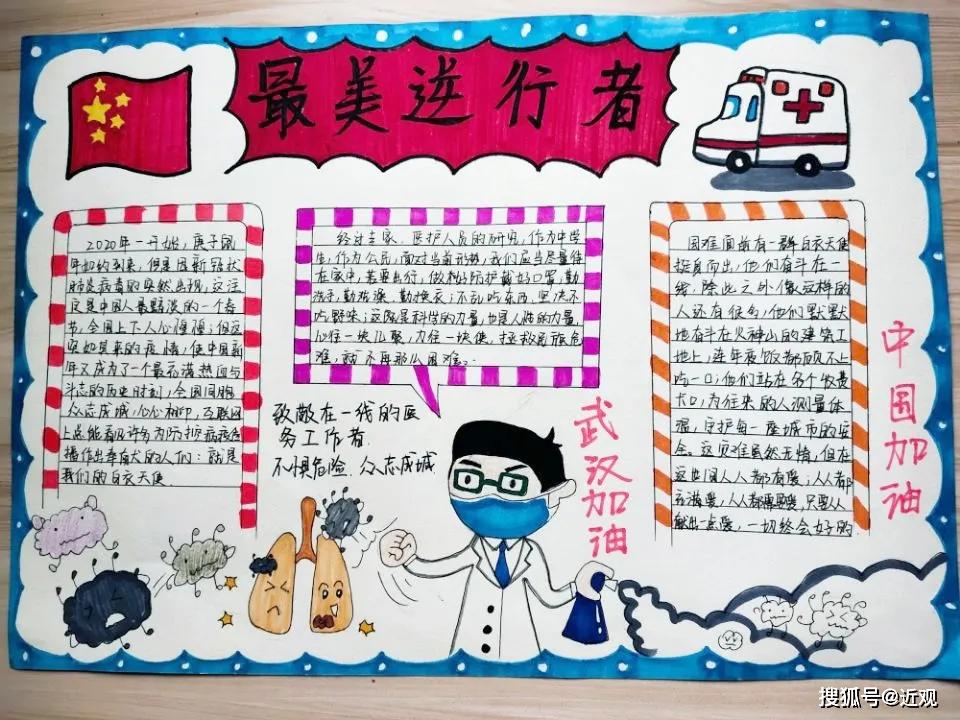 最美逆行者
2020年一开始，庚子鼠
年如约到来，但是因新冠状
肺炎病毒的突然出现，这注
定是中国人最黯淡的一个春
节，全国上下人心惶惶；但这
突如其来的疫情，使中国新
年又成为了一个最充满热血与
斗志的历史时刻，全国同胞
众志成城，心心相印，互联网
上总能看见许多为防控病疫
操作出奉献的人们：就是
我们的白衣天使
经过专家、医护人员的研究，作为中学
生，作为公民，面对当前形势，我们应当尽量待
在家中，若要出行，做好防护戴好口罩，勤
洗手，勤洗澡，勤换衣；不乱吃东西，坚决不
吃野味；这既是科学的力量，也是人脑的力量，
心往一块儿聚，力往一块使，拯救民族危
难，就不再那么困难。
致敬在一线的医
务工作者
不惧危险 众志成城
困难面前有一群白衣天使
挺身而出，他们奋斗在一
线，除此之外像这样的
人还有很多，他们默默
地奋斗在火神山的建筑工
地上，连年夜饭都顾不上
吃一口；他们站在各个收费
卡口，为往来的人测量体
温，守护每一座城市的安
全。这灾难虽然无情，但在
这些国人人都有爱；人人都
充满爱，人人都需要爱，只要人人
献出一点爱，一切终会好的
武汉加油
中国加油
搜狐号@近观